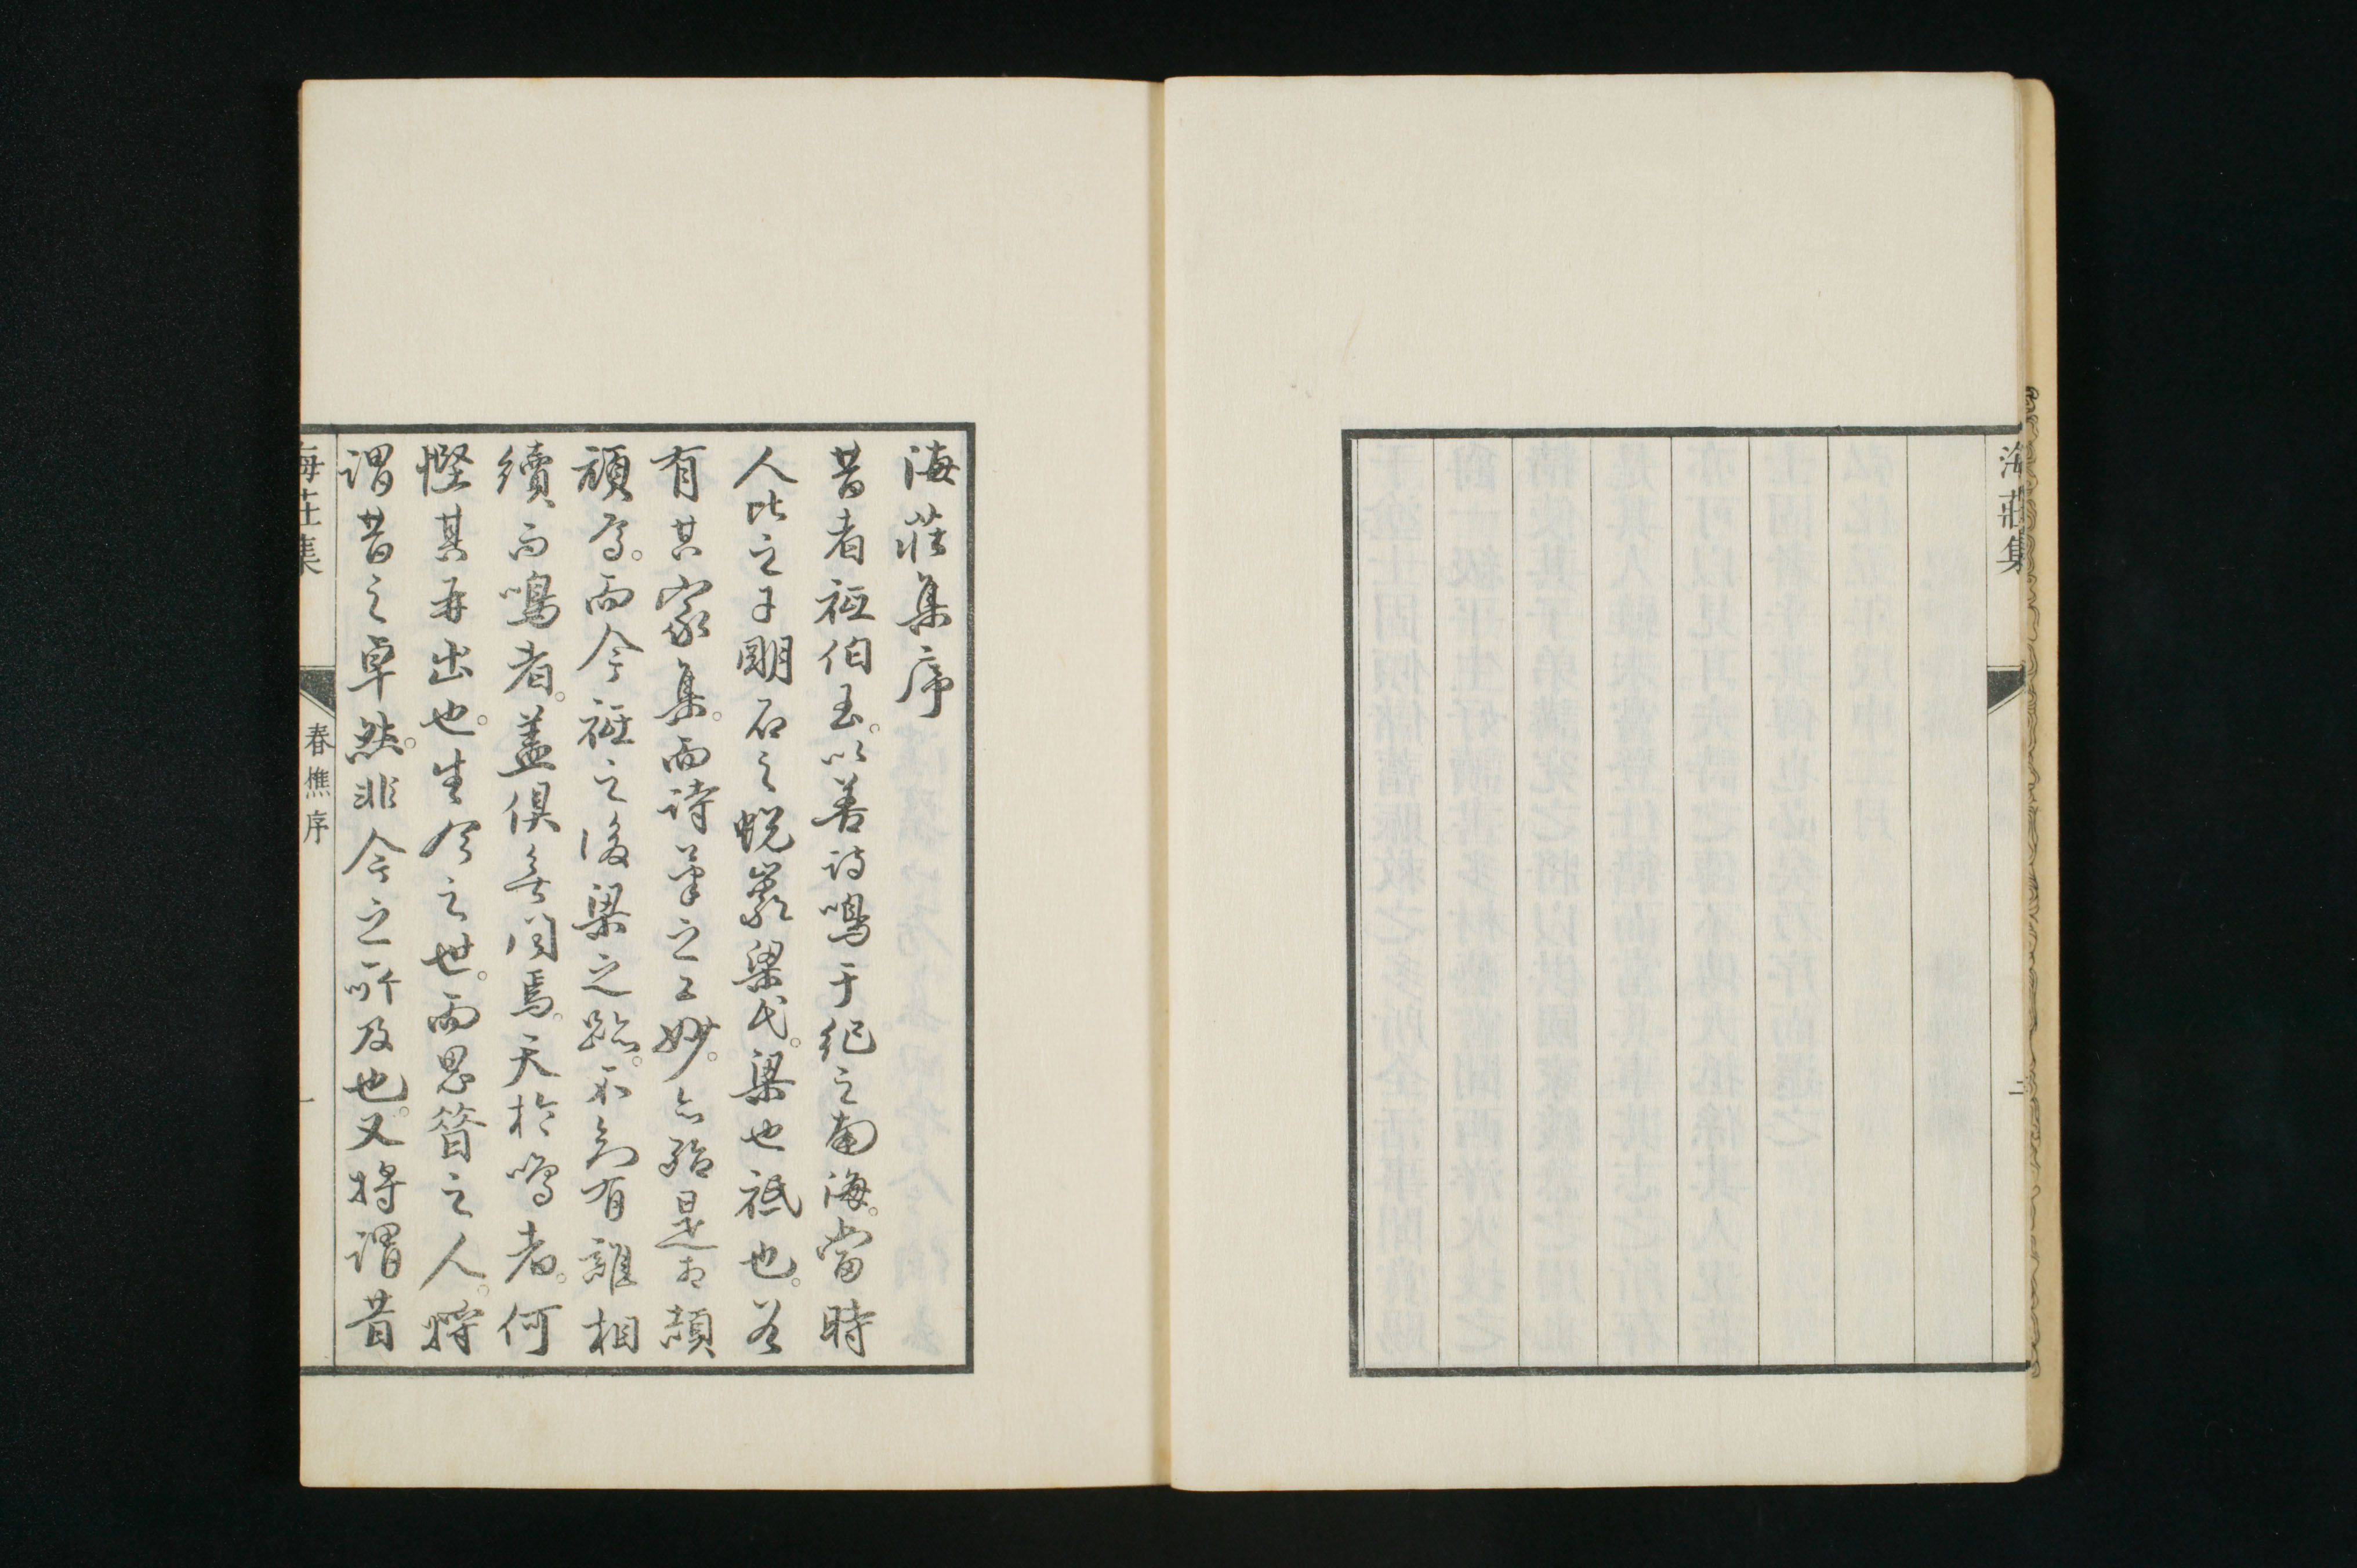 海莊集
二
海莊集序
昔者祗伯玉。以善詩鳴于紀之南海。當時
人比之于明石之蛻巖梁氏。梁也祗也。各
有其家集。而詩筆之工妙。亦殆是相頡
頏焉。而今祗之後梁之跡。不知有誰相
續而鳴者。蓋俱無聞焉。天於鳴者。何
慳其再出也。生今之世。而思昔之人。將
謂昔之卓然。非今之所及也。又將謂昔
海莊集
春樵序
一